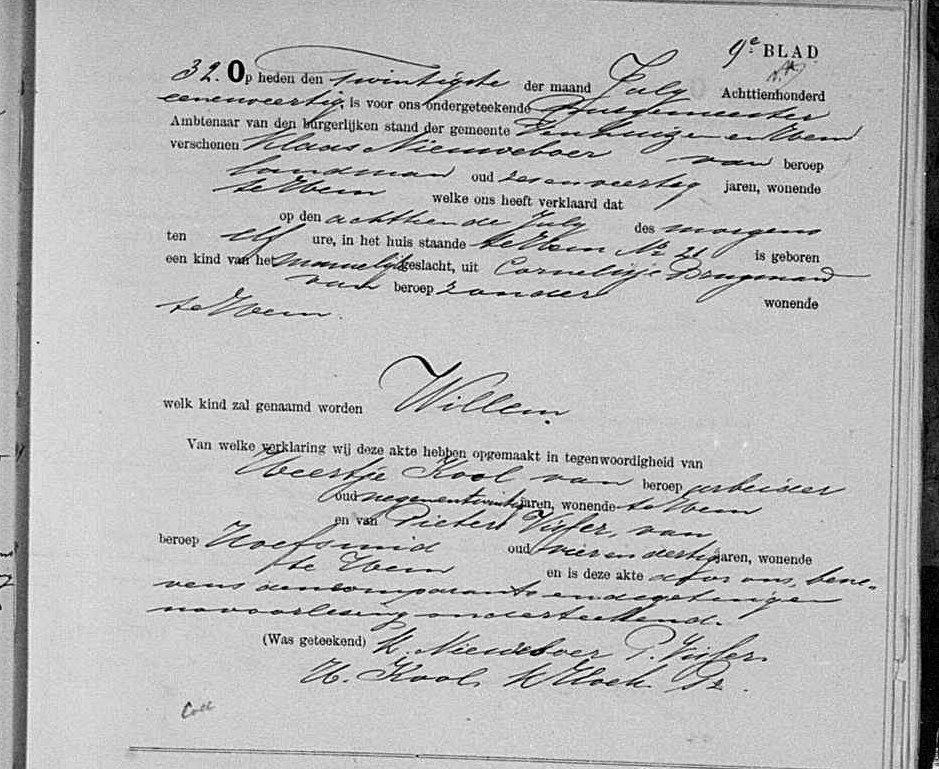 9e BLAD
32. Op heden den twintigste der maand July Achttienhonderd
eenenveertig, is voor ons ondergeteekende Burgemeester
Ambtenaar van den burgerlijken stand der gemeente Venhuizen en Hem
verschenen Klaas Nieuweboer van beroep
landman oud zesenveertig jaren, wonende
te Hem welke ons heeft verklaard dat
op den achttiende July des morgens
ten elf ure, in het huis staande te Hem No 21 is geboren
een kind van het mannelijk geslacht, uit Cornelisje Brugman
van beroep zonder wonende
te Hem.
welk kind zal genaamd worden Willem.
Van welke verklaring wij deze akte hebben opgemaakt in tegenwoordigheid van
Heertje Kool van beroep arbeider
oud negenentwintig jaren, wonende te Hem
en van Pieter Visser, van
beroep Hoefsmid oud vierendertig jaren, wonende
te Hem en is deze akte door ons, bene-
vens den comparant en de getuigen
na voorlezing onderteekend.
(Was geteekend) K. Nieuweboer P. Visser.
H. Kool, K Kock Pz.
Coll